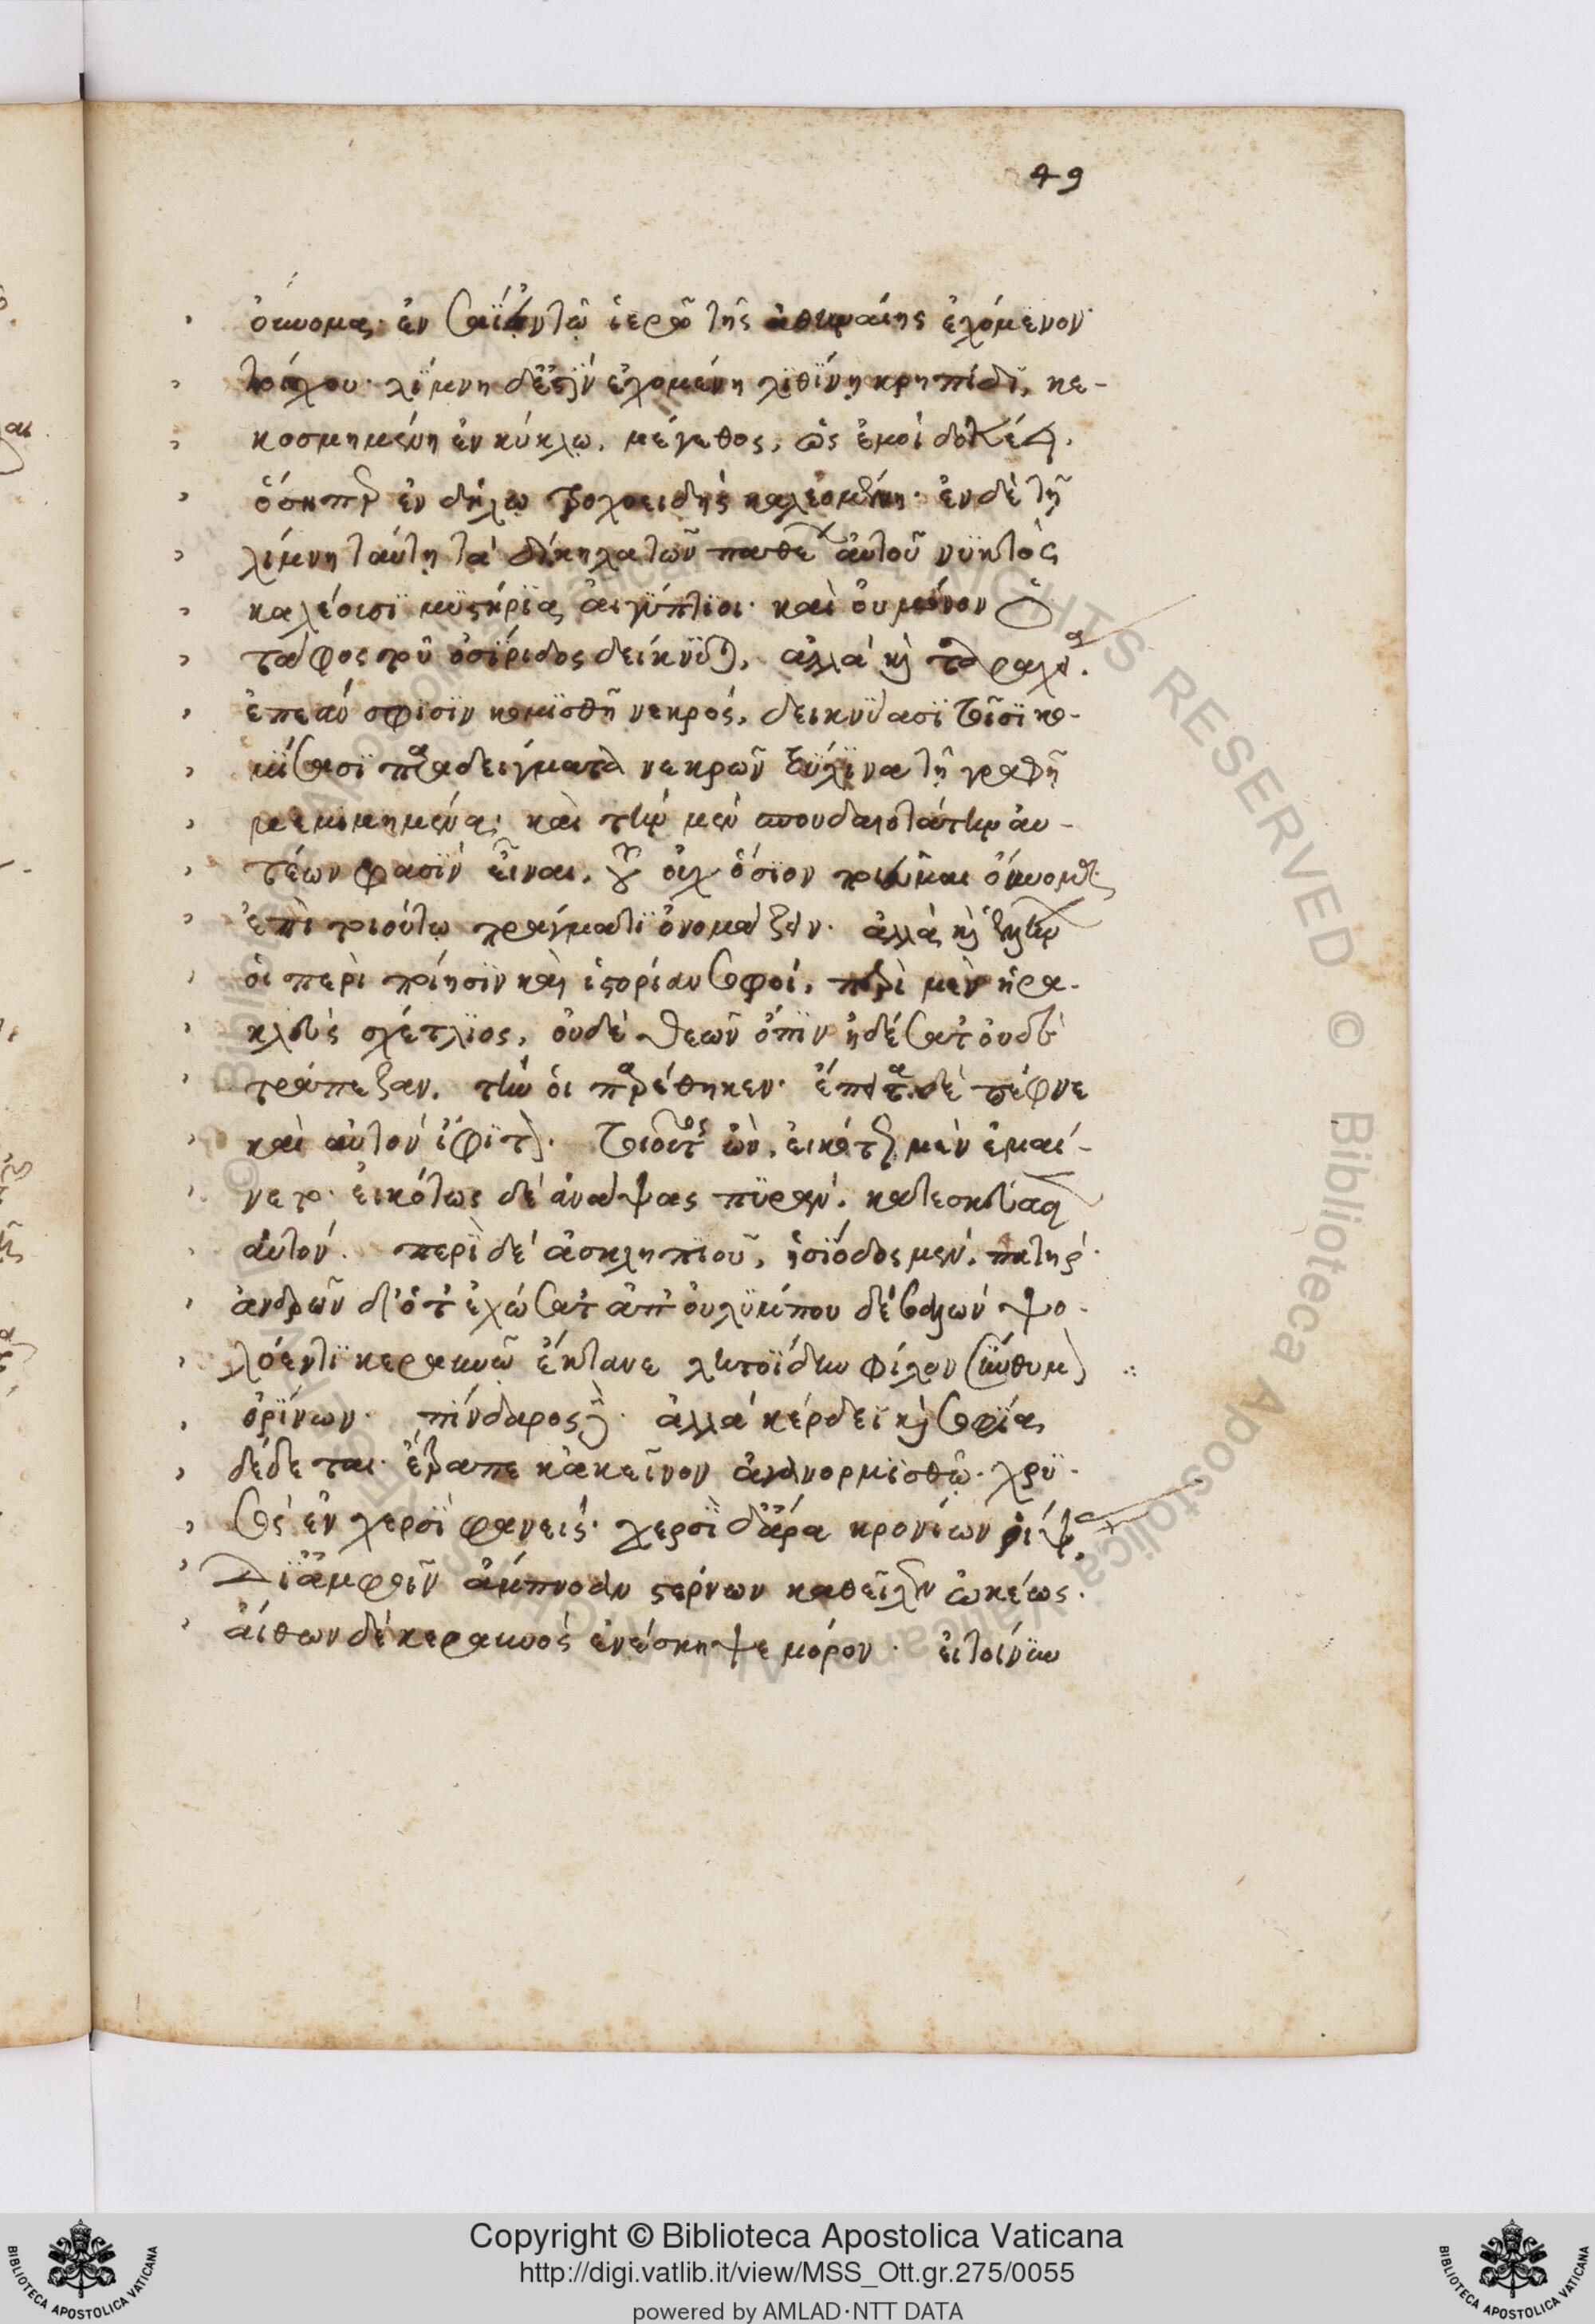 49
οὔνομα· ἐν Σάϊ ἐν τῷ ἱερῷ τῆς ἀθηναίης ἐχόμενον
τοίχου· λίμνη δέ ἐστιν ἐχομένη λιθίνῃ κρηπίδι, κε-
κοσμημένη ἐν κύκλῳ, μέγεθος, ὡς ἐμοὶ δοκέει,
ὅση περ ἐν δήλῳ τροχοειδὴς καλεομένη· ἐν δὲ τῇ
λίμνῃ ταύτῃ τὰ δίκηλα τῶν παθέων αὐτοῦ νυκτὸς
καλέουσι μυστήρια αἰγύπτιοι· καὶ οὐ μόνον ὁ
τάφος τοῦ ὀσίριδος δείκνυται, ἀλλὰ καὶ ταραχα.
ἐπεάν σφισιν κομισθῇ νεκρός, δεικνύασι τοῖσι κο-
μίσασι παραδείγματα νεκρῶν ξύλινα τῇ γραφῇ
μεμιμημένα· καὶ τὴν μὲν σπουδαιοτάτην αὐ-
τέων φασὶν εἶναι, τοῦ οὐχ ὅσιον ποιοῦμαι οὔνομα
ἐπὶ τοιούτῳ πράγματι ὀνομάζειν· ἀλλὰ καὶ ἑλλήνων
οἱ περὶ ποίησιν καὶ ἱστορίαν σοφοί, περὶ μὲν ἡρα-
κλέους σχέτλιος, οὐδὲ θεῶν ὄπιν ᾐδέσατ' οὐδὲ
τράπεζαν, τὴν οἱ παρέθηκεν· ἔπειτα δὲ πέφνε
καὶ αὐτὸν ἴφιτον· τοιοῦτος ὢν, εἰκότως μὲν ἐμαί-
νετο· εἰκότως δὲ ἀνάψας πυρὰν, κατεσκέδασεν
αὑτόν. περὶ δὲ ἀσκληπιοῦ, ἡσίοδος μὲν, πατὴρ
ἀνδρῶν δ' ὅτ' ἐχώσατ' ἀπ' οὐλύμπου δὲ βαλὼν ψο-
λόεντι κεραυνῷ ἔκτανε λητοΐδην φίλον σὺν θυμὸν
ὀρίνων· πίνδαρος δὲ· ἀλλὰ κέρδει καὶ σοφία
δέδεται· ἔτραπε κἀκεῖνον ἀγάνορι μισθῷ· χρυ-
σὸς ἐν χερσὶ φανείς· χερσὶ δ' ἄρα κρονίων ῥίψας
Δι' ἀμφοῖν ἀμπνοὰν στέρνων καθεῖλεν ὠκέως·
αἴθων δὲ κεραυνὸς ἐνέσκηψε μόρον· εἰ τοίνυν
Copyright © Biblioteca Apostolica Vaticana
http://digi.vatlib.it/view/MSS_Ott.gr.275/0055
powered by AMLAD·NTT DATA